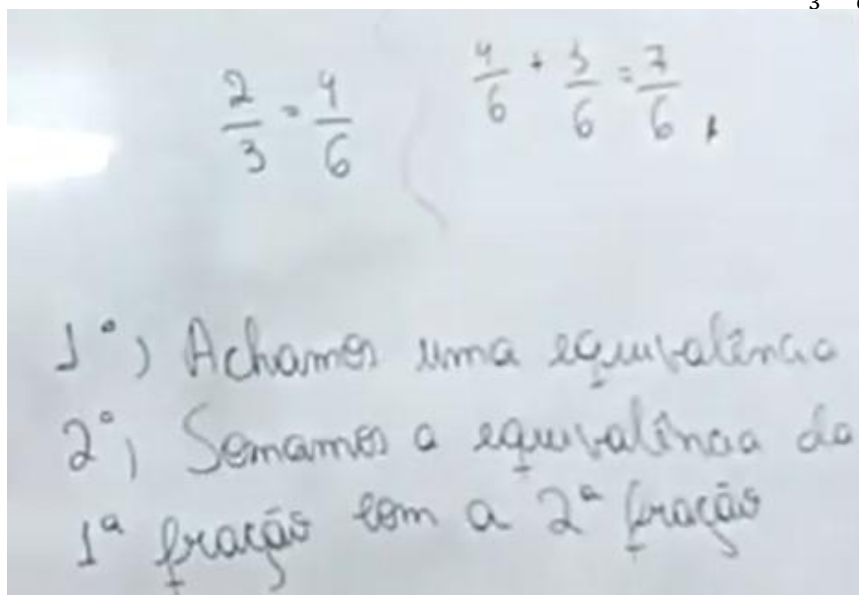 3
2/3 = 4/6
4/6 + 3/6 = 7/6
1°) Achamos uma equivalência
2°) Somamos a equivalência da
1ª fração com a 2ª fração